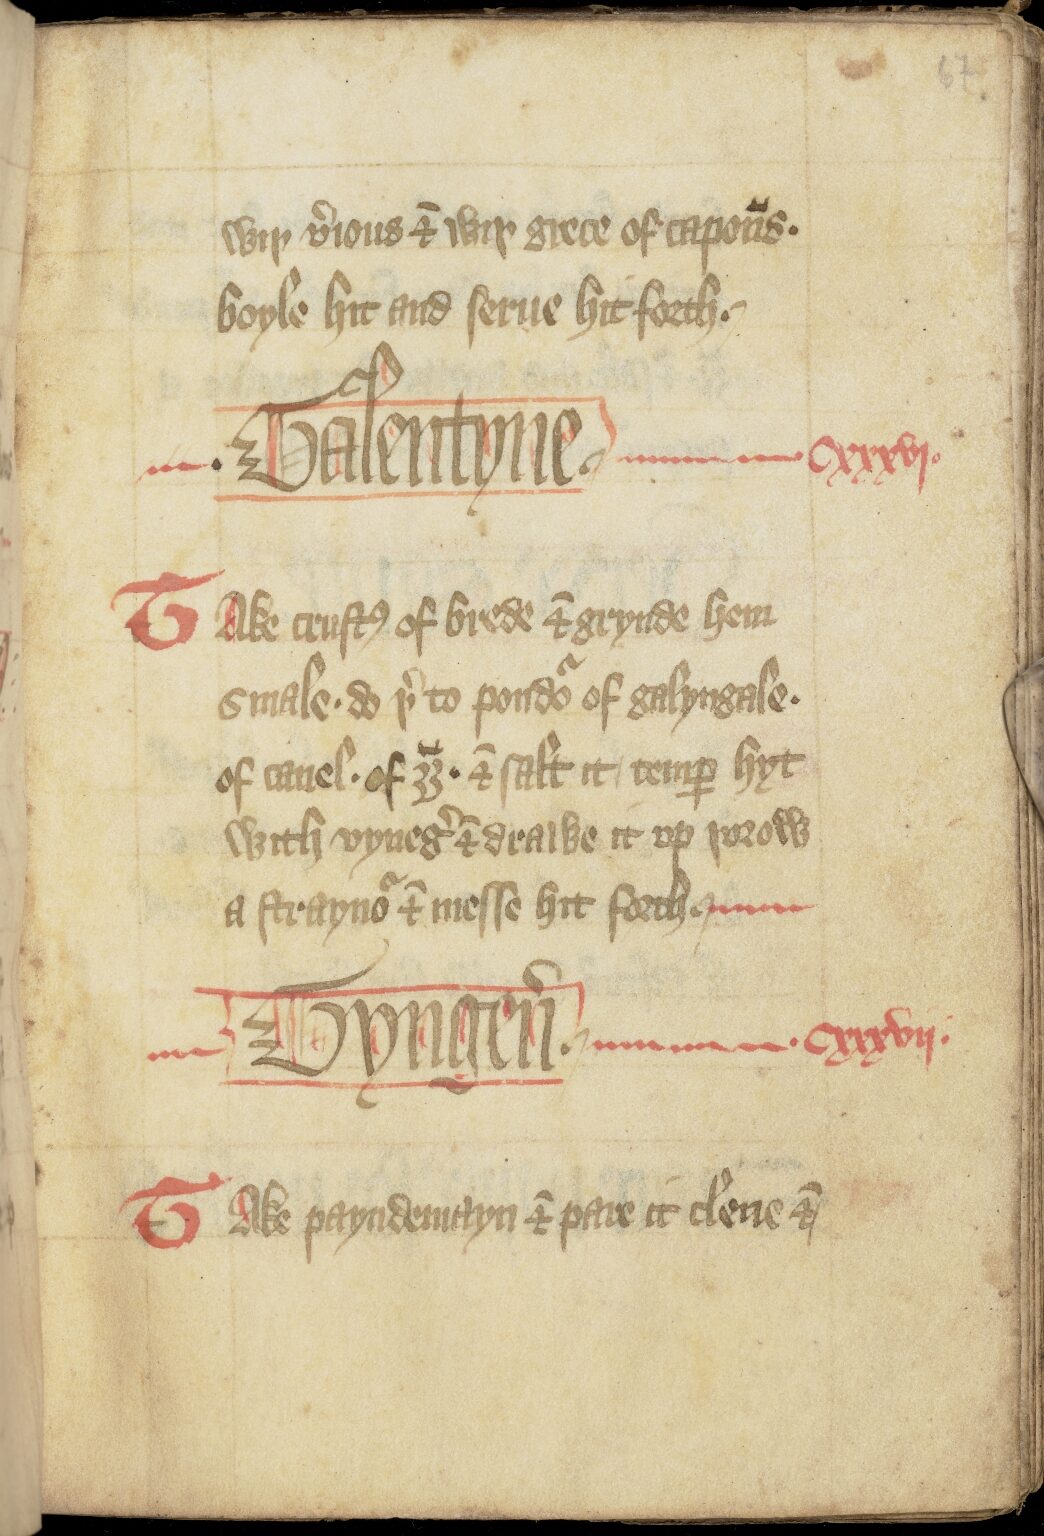 67.
wiþ v̾ious ⁊ wiþ grece of capoūs.
boyle hit and serue hit forth.
Galentyne. Cxxxvi.
TAke crustꝰ of brede ⁊ grynde hem
smale. do þ̾ to poudoᷓ of galyngale.
of canel. of gӡ. ⁊ salt it / temꝑ hyt
with vyneg̾ ⁊ drawe it vp þorow
a straynoᷓ ⁊ messe hit forth.
Gyngen̾. Cxxxvii.
TAke payndemayn ⁊ pare it clene ⁊